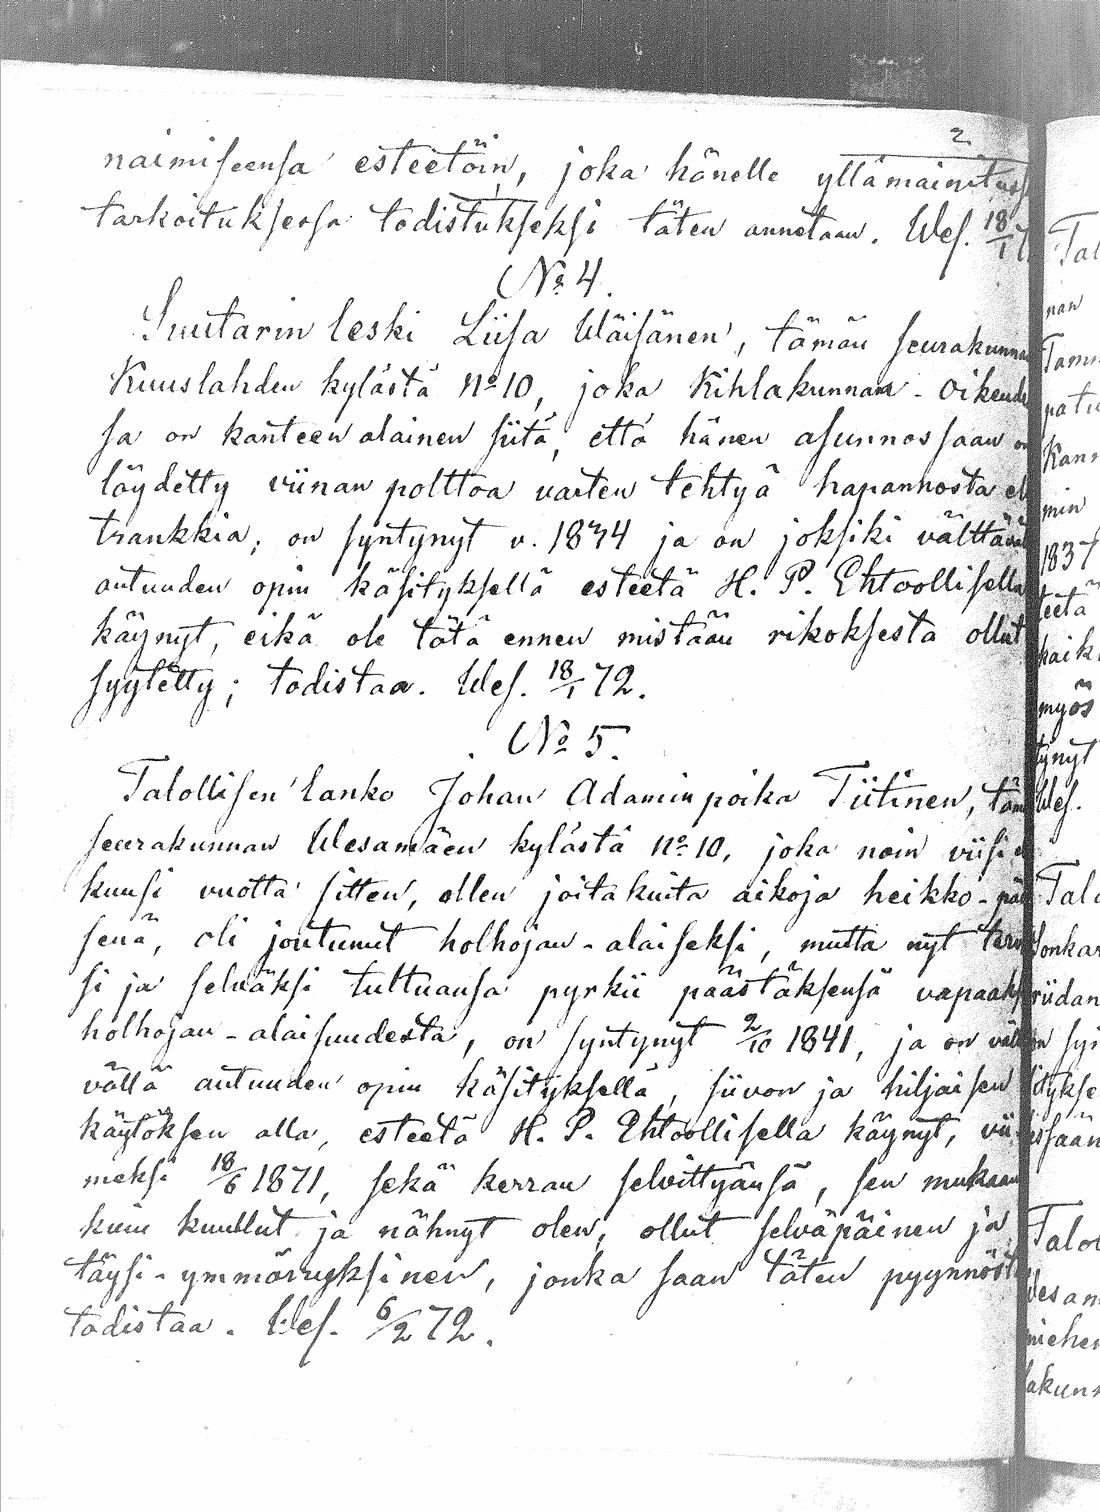 2
naimiseensa esteetöin, joka hänelle yllämainitus
tarkoituksessa todistukseksi täten annetaan. Wes. 18/1 7
No 4.
Suutarin leski Liisa Wäisänen, tämän seurakunnan
Kuuslahden kylästä No 10, joka Kihlakunnan-oikeude
sa on kanteen alainen siitä, että hänen asunnossaan on
löydetty viinan polttoa varten tehtyä hapannosta el
trankkia; on syntynyt v. 1834 ja on joksiki välttävä
autuuden opin käsityksellä esteetä H. P. Ehtoollisella
käynyt, eikä ole tätä ennen mistään rikoksesta ollut
syytetty; todistaa. Wes. 18/1 72.
No 5.
Talollisen lanko Johan Adamin poika Tiitinen, täm
seurakunnan Wesamäen kylästä No 10, joka noin viisi e
kuusi vuotta sitten, ollen joitakuita aikoja heikko-päi
senä, oli joutunut holhojan-alaiseksi, mutta nyt terv
si ja selväksi tultuansa pyrkii päästäksensä vapaaks
holhojan-alaisuudesta, on syntynyt 2/10 1841, ja on vält
vällä autuuden opin käsityksellä, siivon ja hiljaisen
käytöksen alla, esteetä H. P. Ehtoollisella käynyt, vii
meksi 18/6 1871, sekä kerran selvittyänsä, sen mukaan
kuin kuullut ja nähnyt olen, ollut selväpäinen ja
täysi-ymmärryksinen, jonka saan täten pyynnöst
todistaa. Wes. 6/2 72.
Tal
nan
Tamm
patu
Kann
min
1837
teetä
kaik
myös
tynyt
Wes.
Talo
Jonkar
riidan
on syn
itykse
issään
Talol
Wesam
miehen
lakunn